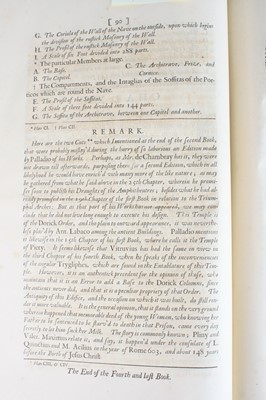 ( 90 )
G. The Cornish of the Wall of the Nave on the outside, upon which begins
the division of the rustick Masonry of the Wall.
H. The Profil of the rustick Masonry of the Wall.
I. A Scale of six Feet devided into 288 parts.
* The particular Members at large.
A. The Base.
B. The Capitel.
C. The Architrave, Frize, and
Cornice.
The Compartments, and the Intaglias of the Soffitas of the Por-
ticos which are round the Nave.
E. The Profil of the Soffitas.
F. A Scale of three feet devided into 144 parts.
G. The Soffita of the Architraves, between one Capitel and another.
REMARK.
Here are the two Cuts mentioned at the end of the second Book,
that were probably mislay'd during the hurry of so laborious an Edition made
by Palladio of his Works. Perhaps, as Mr. de Chambray has it, they were
not drawn till afterwards, purposing them for a second Edition, which in all
likelyhood he would have enrich'd with many more of the like nature; as may
be gathered from what he said above in the 25th Chapter, wherein he promi-
ses soon to publish his Draughts of the Amphitheaters; besides what he had al-
ready promised in the
phal Arches; But as that part of his Works
clude that he did not live long enough to execute his design. This Temple is
of the Dorick Order, and tho plain in outward appearance, it was neverthe-
less plac'd by Ant. Labaco among the antient Buildings. Palladio mentions
it likewise in the 15th Chapter of his first Book, where he calls it the Temple
of Piety. It seems likewise that Vitruvius has had the same in view in
the third Chapter of his fourth Book, when he speaks of the inconveniencies
of the angular Tryglyphes, which are found in the Entablature of this Tem-
ple. However, it is an authentick precedent for the opinion of those, who
maintain that it is an Error to add a Base to the Dorick Columns, since
the antients never did, and that it is a peculiar propriety of that Order. The
Antiquity of the Edifice, and the occasion on which it was built, do still ren-
der it more valuable. It is the general opinion, that it stands on the very ground
whereon happened that memorable deed of the young Woman, who knowing her
Father to be sentenced to be starv'd to death in that Prison, came every day
secretly to let him suck her Milk. The story is commonly known; Pliny and
Valer. Maximus relate it, and say, it happen'd under the consulate of L.
Quinctius and M. Acilius in the year of Rome 603, and about 148 years
before the Birth of Jesus Christ.
The End of the Fourth and last Book.